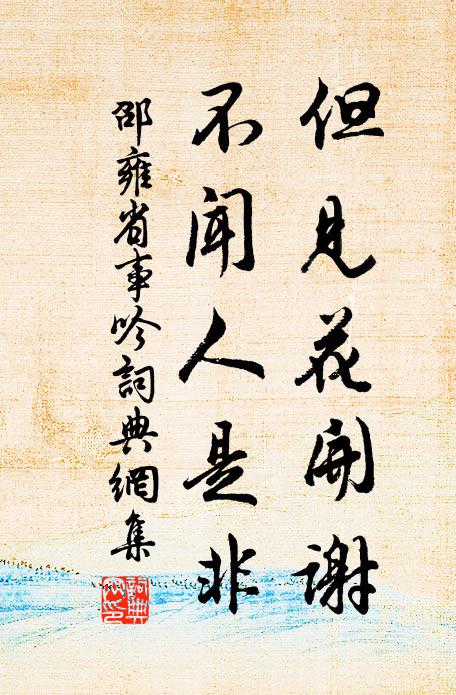 但见花開謝
不闻人是非
邵雍省事吟詞典網集